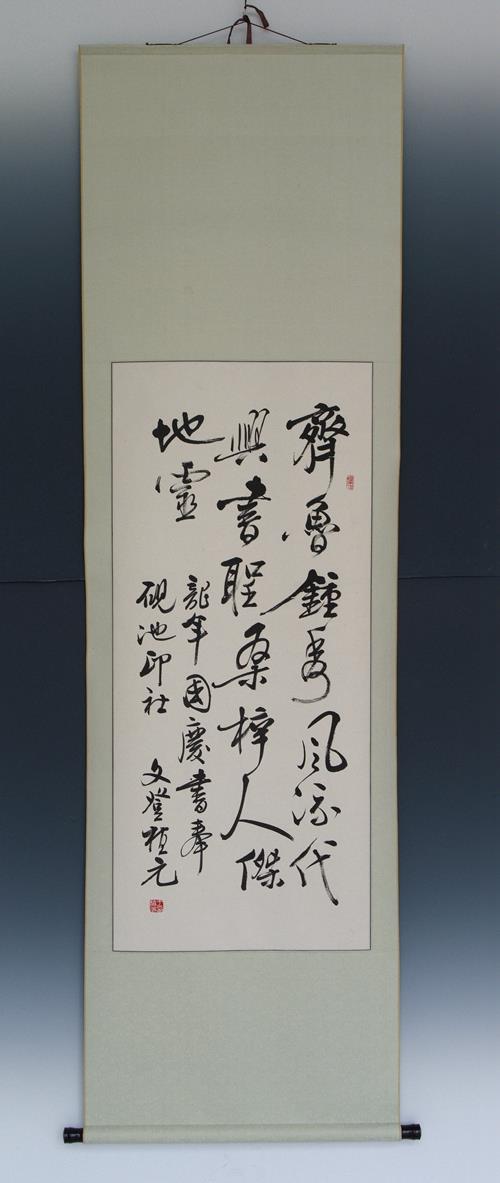 齊魯鍾秀風流代
興書聖桑梓人傑
地靈
龍年國慶書奉
硯池印社 文登植元